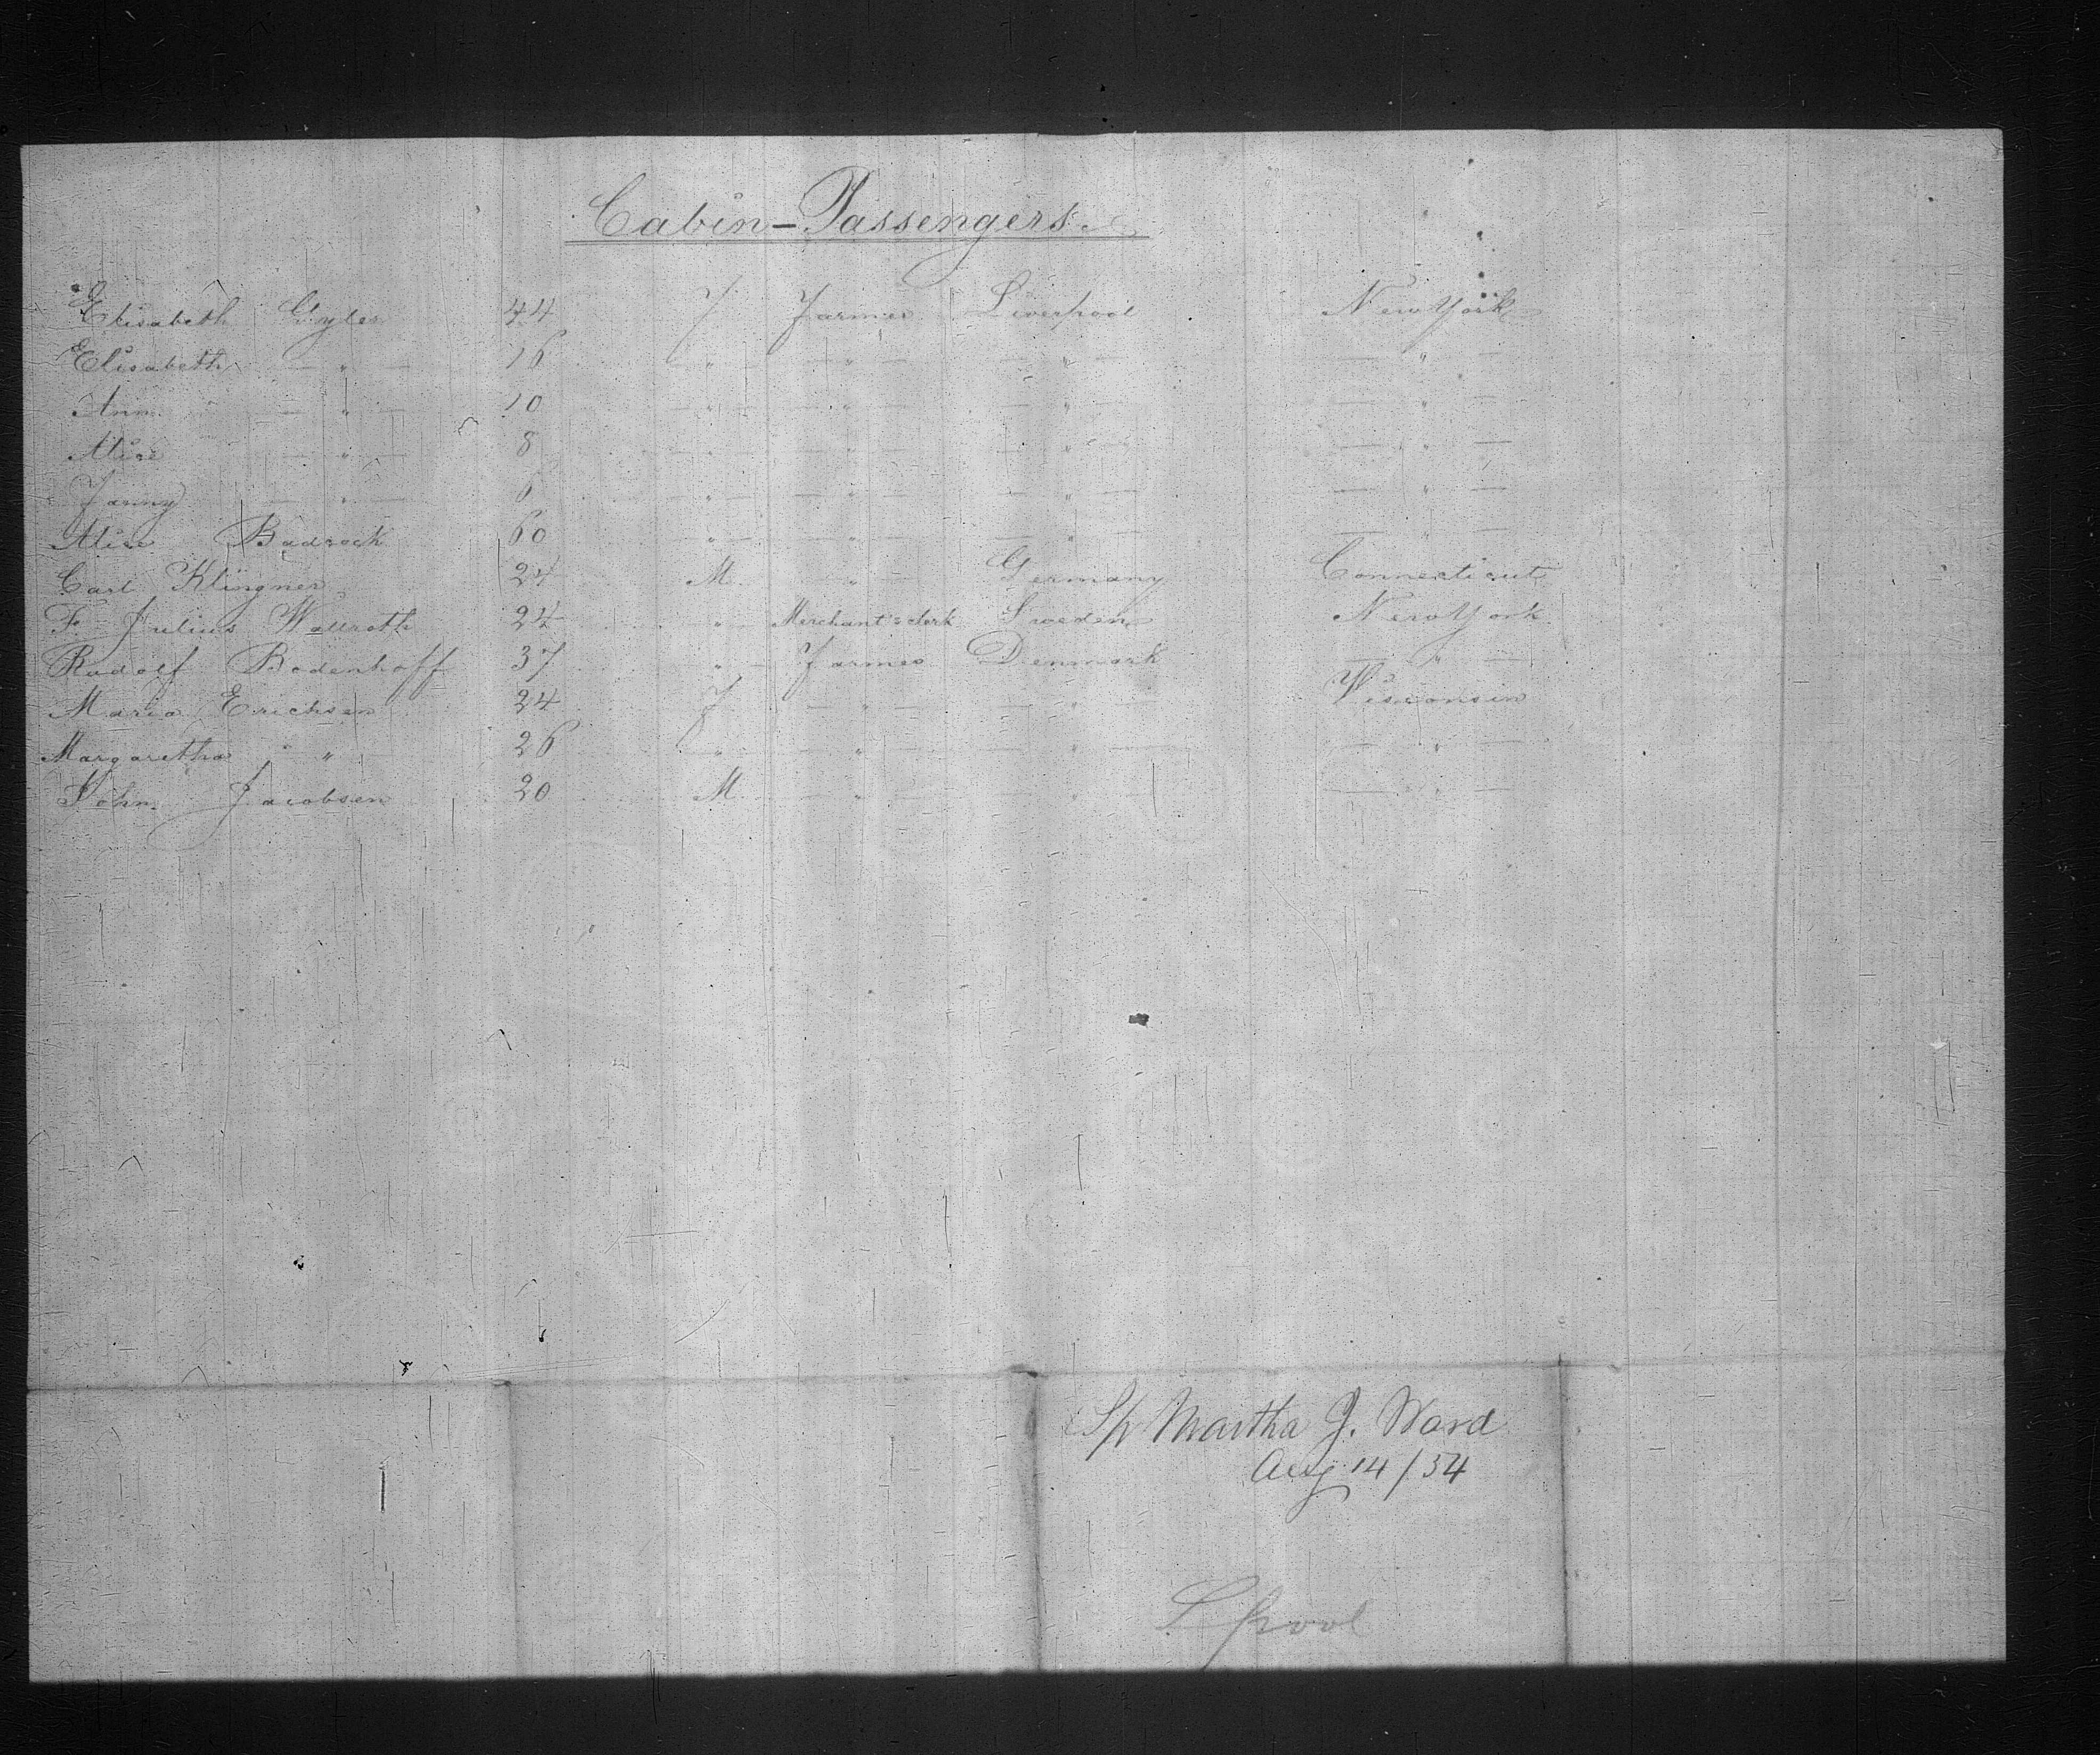 Cabin-Passengers.
Elisabeth Gyles 44 F Farmer Liverpool New York
Elisabeth — " — 16 — " — — " — — " — — " —
Ann — " — 10 — " — — " — — " — — " —
Alice — " — 8 — " — — " — — " — — " —
Fanny — " — 6 — " — — " — — " — — " —
Alice Badrock 60 — " — — " — — " — — " —
Carl Klingner 24 M — " — Germany Connecticut
F. Julius Wallroth 24 " Merchant's clerk Sweden New York
Rudolf Bodenhoff 37 " Farmer Denmark — " —
Maria Erichsen 24 F — " — — " — Wisconsin
Margaretha " 26 " — " — — " — — " —
John Jacobsen 20 M — " — — " — — " —
Sp Martha J. Ward
Aug 14/54
L pool